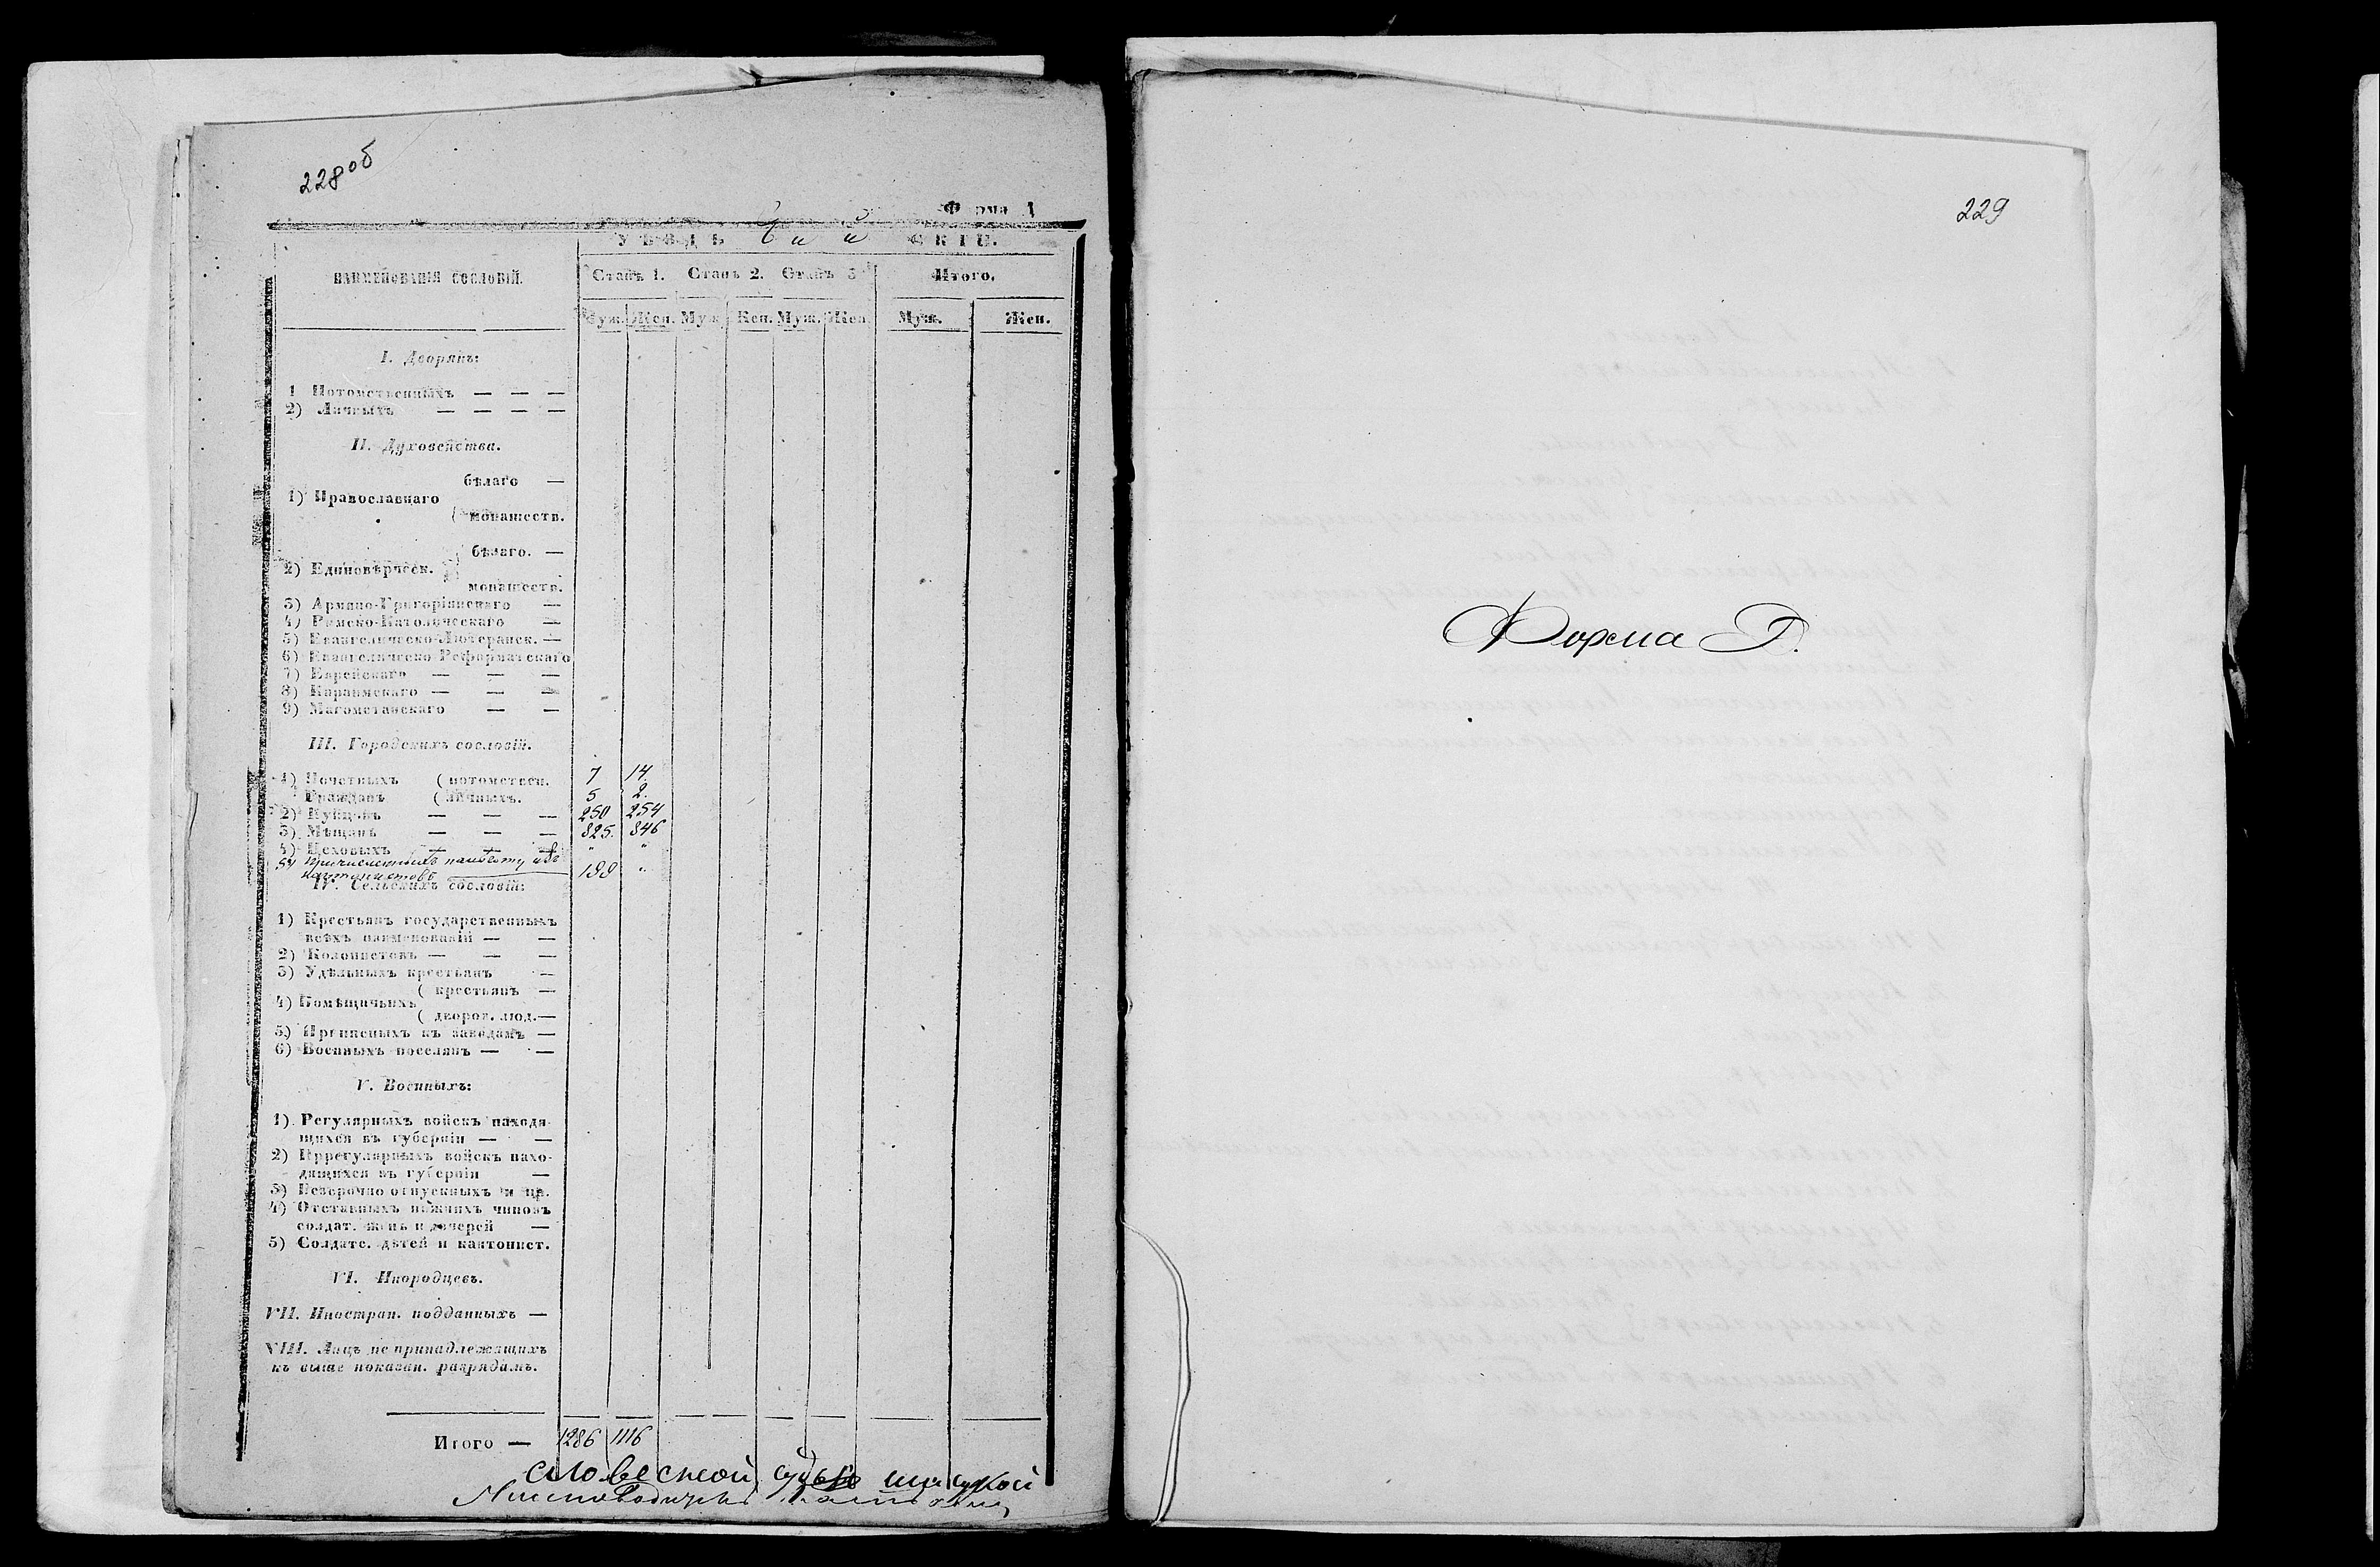 228 об
Форма Д
УѢЗДЪ Бий СКІЙ.
НАИМЕНОВАНІЯ СОСЛОВІЙ.
Станъ 1. Станъ 2. Станъ 3
Итого.
Муж. Жен. Муж. Жен. Муж. Жен.
Муж. Жен.
I. Дворянъ:
1 Потомственныхъ — — —
2) Личныхъ — — — —
II. Духовенства.
бѣлаго —
1) Православнаго
( монашеств.
бѣлаго. —
2) Единовѣрческ.
монашеств.
3) Армяно-Григоріанскаго —
4) Римско-Католическаго —
5) Евангелическо-Лютеранск. —
6) Евангелическо Реформатскаго
7) Еврейскаго — — —
8) Караимскаго — — —
9) Магометанскаго — —
III. Городскихъ сословій.
1) Почетныхъ ( потомствен. 7 14
Гражданъ ( личныхъ. 5 2.
2) Купцовъ — — — 250 254
3) Мѣщанъ — — — 825. 846
4) Цеховыхъ — — — " "
5) Причисленныхъ изъ 199 "
кантонистовъ
IV. Сельскихъ сословій:
1) Крестьянъ государственныхъ
всѣхъ наименованій — —
2) Колонистовъ — — —
3) Удѣльныхъ крестьянъ —
( крестьянъ —
4) Помѣщичьихъ
( дворов. люд. —
5) Приписныхъ къ заводамъ —
6) Военныхъ поселянъ — —
V. Военныхъ:
1) Регулярныхъ войскъ находя-
щихся въ губерніи — —
2) Иррегулярныхъ войскъ нахо-
дящихся въ губерніи —
3) Безсрочно отпускныхъ и пр.
4) Отставныхъ нижнихъ чиновъ
солдат. женъ и дочерей —
5) Солдатс. дѣтей и кантонист.
VI. Инородцевъ.
VII. Иностран. подданныхъ —
VIII. Лицъ не принадлежащихъ
къ выше показан. разрядамъ.
Итого — 1286 1116
словесной судья
229
Форма Д.